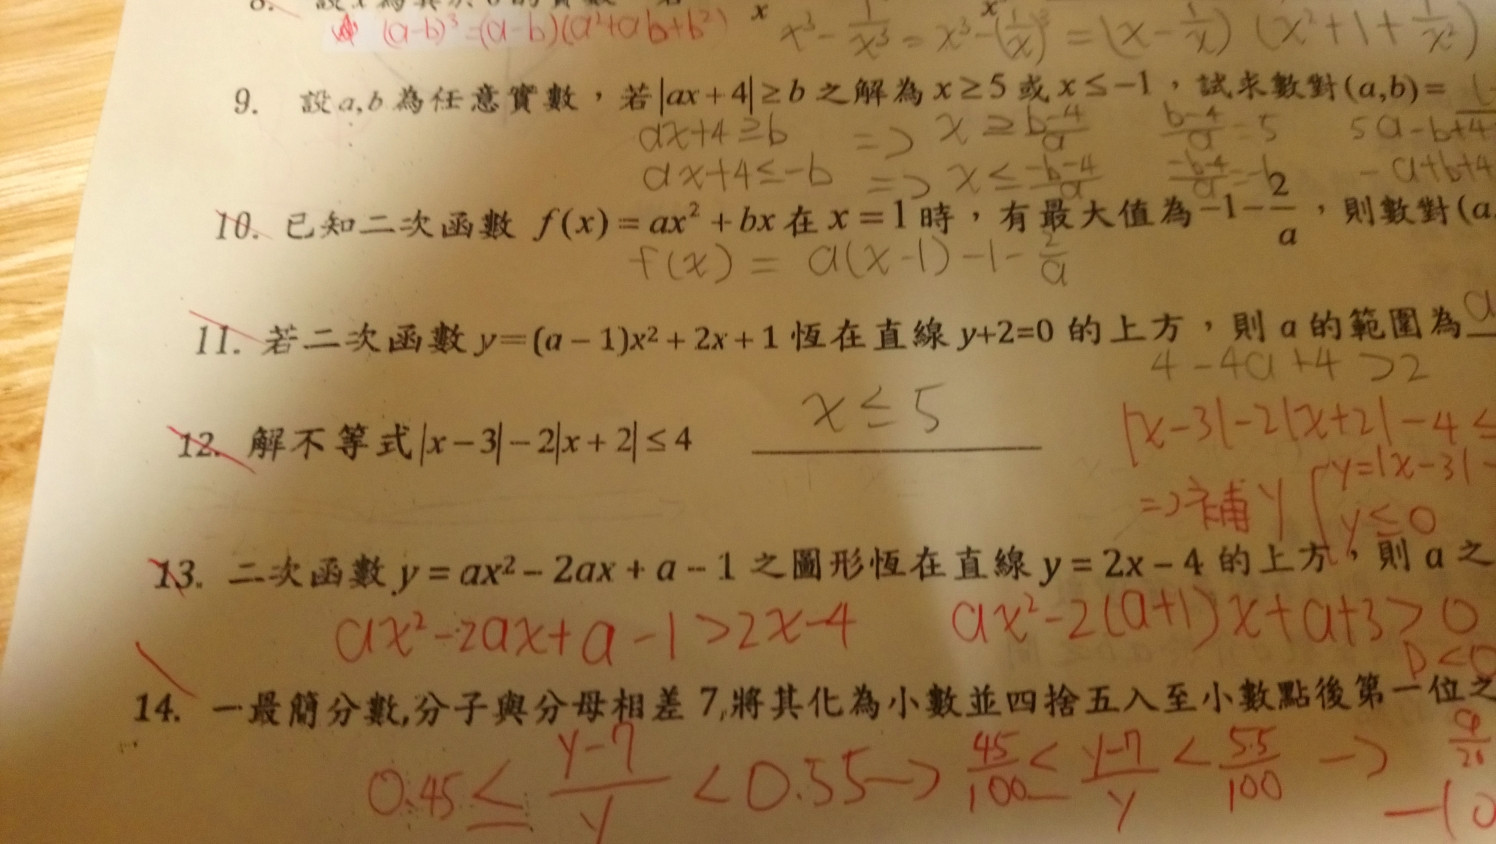 (a-b)³=(a-b)(a²+ab+b²)
x³-1/x³=x³-(1/x)³=(x-1/x)(x²+1+1/x²)
9. 設a,b為任意實數，若|ax+4|≥b之解為x≥5或x≤-1，試求數對(a,b)=
ax+4≥b => x≥(b-4)/a (b-4)/a=5 5a-b+4
ax+4≤-b => x≤(-b-4)/a -a+b+4
10. 已知二次函數 f(x)=ax²+bx在x=1時，有最大值為-1-2/a，則數對(a
f(x)=a(x-1)-1-2/a
11. 若二次函數y=(a-1)x²+2x+1恆在直線y+2=0的上方，則a的範圍為
4-4a+4>2
x≤5
12. 解不等式|x-3|-2|x+2|≤4
|x-3|-2|x+2|-4≤
=>補y { y=|x-3|-
y≤0
13. 二次函數y=ax²-2ax+a-1之圖形恆在直線y=2x-4的上方，則a之
ax²-2ax+a-1>2x-4 ax²-2(a+1)x+a+3>0
D<0
14. 一最簡分數,分子與分母相差7,將其化為小數並四捨五入至小數點後第一位之
0.45≤(y-7)/y<0.55→45/100≤(y-7)/y<55/100→9/20